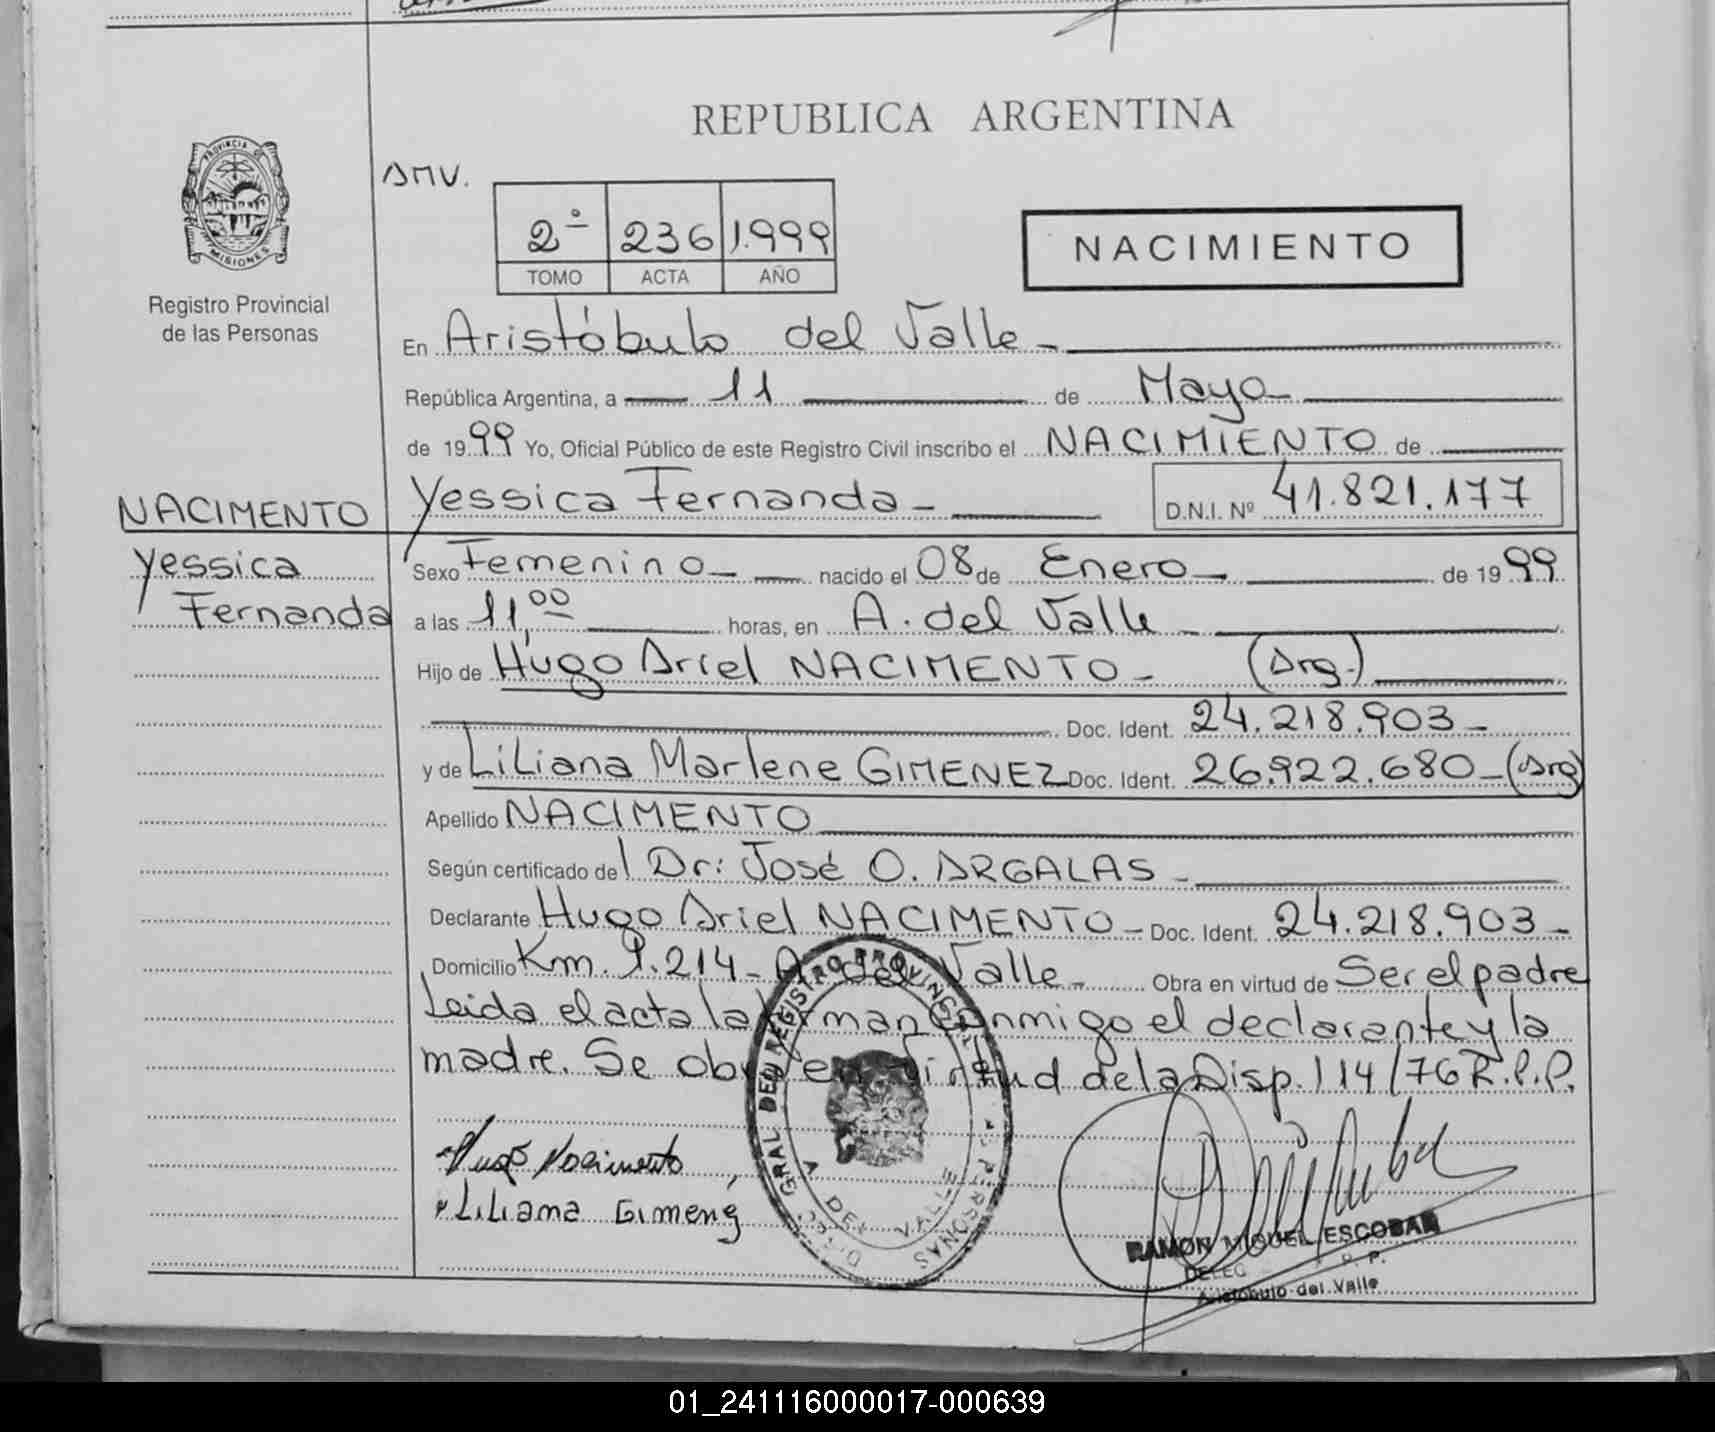 REPUBLICA ARGENTINA
PROVINCIA DE
MISIONES
Registro Provincial
de las Personas
AMV.
2º 236 1.999
TOMO ACTA AÑO
NACIMIENTO
En Aristóbulo del Valle
República Argentina, a 11 de Mayo
de 1999 Yo, Oficial Público de este Registro Civil inscribo el NACIMIENTO de
Yessica Fernanda D.N.I. Nº 41.821.177
NACIMENTO
Yessica
Fernanda
Sexo Femenino nacido el 08 de Enero de 1999
a las 11,00 horas, en A. del Valle
Hijo de Hugo Ariel NACIMENTO (Arg.)
Doc. Ident. 24.218.903
y de Liliana Marlene GIMENEZ Doc. Ident. 26.922.680 (Arg)
Apellido NACIMENTO
Según certificado del Dr: José O. ARGALAS
Declarante Hugo Ariel NACIMENTO Doc. Ident. 24.218.903
Domicilio Km. 1.214 - A. del Valle Obra en virtud de Ser el padre
Leida el acta la firman conmigo el declarante y la
madre. Se obra en virtud de la Disp. 114/76 R.P.P.
Hugo Nacimento
Liliana Gimenez
GRAL DEL REGISTRO PROVINCIAL
PERSONAS
A DEL VALLE
RAMON MIGUEL ESCOBAR
R. P.
Aristóbulo del Valle
01_241116000017-000639